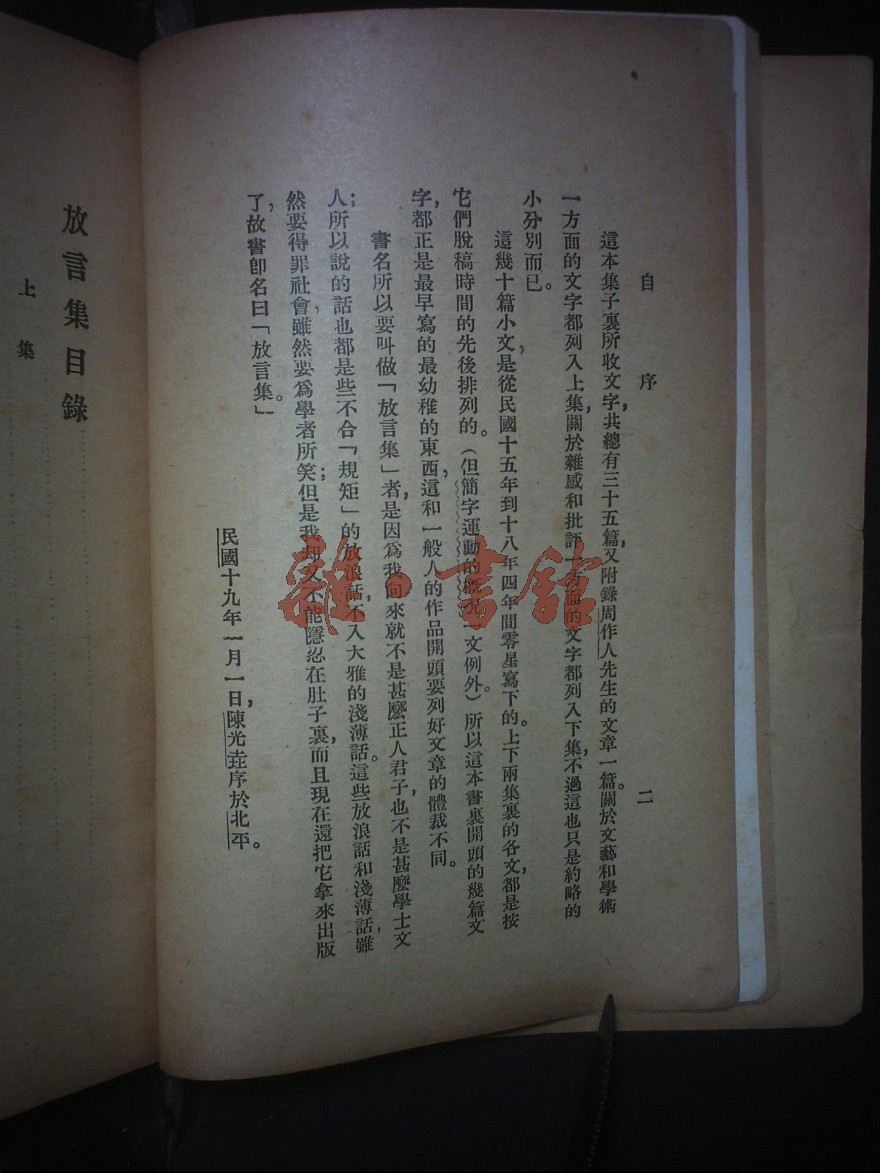 自序
二
這本集子裏所收文字，共總有三十五篇，又附錄周作人先生的文章一篇。關於文藝和學術
一方面的文字都列入上集，關於雜感和批評一方面的文字都列入下集，不過這也只是約略的
小分別而已。
這幾十篇小文，是從民國十五年到十八年四年間零星寫下的。上下兩集裏的各文，都是按
它們脫稿時間的先後排列的。（但簡字運動的概況一文例外。）所以這本書裏開頭的幾篇文
字，都正是最早寫的最幼稚的東西，這和一般人的作品開頭要列好文章的體裁不同。
書名所以要叫做「放言集」者，是因爲我向來就不是甚麽正人君子，也不是甚麽學士文
人；所以說的話也都是些不合「規矩」的放浪話，不入大雅的淺薄話。這些放浪話和淺薄話，雖
然要得罪社會，雖然要爲學者所笑；但是我却又不能隱忍在肚子裏，而且現在還把它拿來出版
了，故書卽名曰「放言集」。
民國十九年一月一日，陳光垚序於北平。
放言集目錄
上集
雜·書館